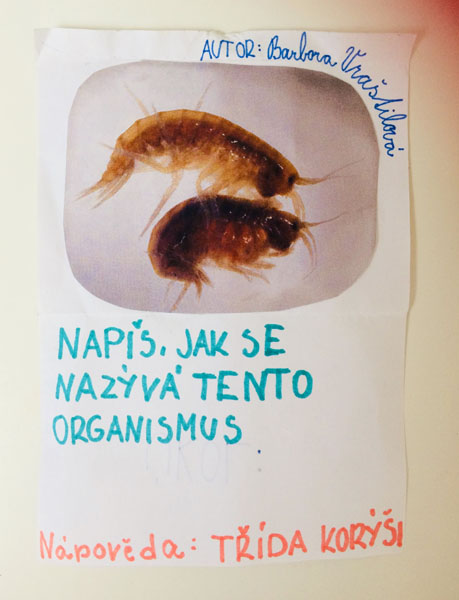 AUTOR: Barbora Vraštilová
NAPIŠ, JAK SE
NAZÝVÁ TENTO
ORGANISMUS
Nápověda: TŘÍDA KORÝŠI